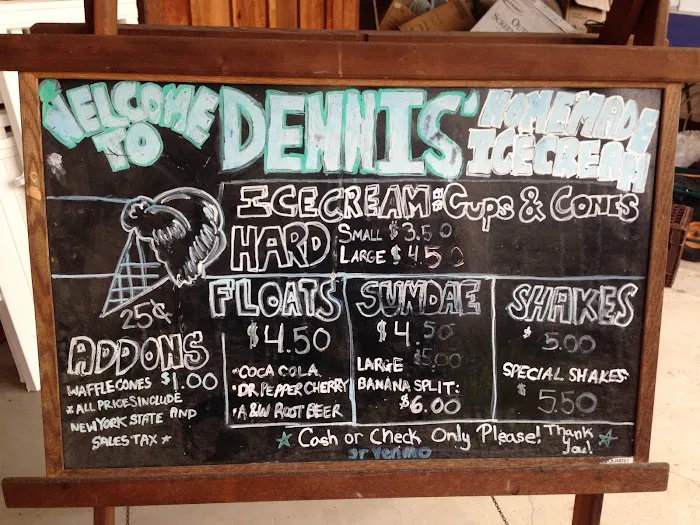 WELCOME TO DENNIS' HOMEMADE ICECREAM
ICECREAM: Cups & CONES
HARD
SMALL $3.50
LARGE $4.50
25¢
ADDONS
WAFFLECONES $1.00
*ALL PRICES INCLUDE
NEWYORK STATE AND
SALES TAX*
FLOATS
$4.50
•COCA COLA
•DR.PEPPER CHERRY
•A&W ROOT BEER
SUNDAE
$4.50
LARGE $5.00
BANANA SPLIT:
$6.00
SHAKES
$5.00
SPECIAL SHAKES:
$5.50
☆ Cash or Check Only Please! Thank You! ☆
or Venmo